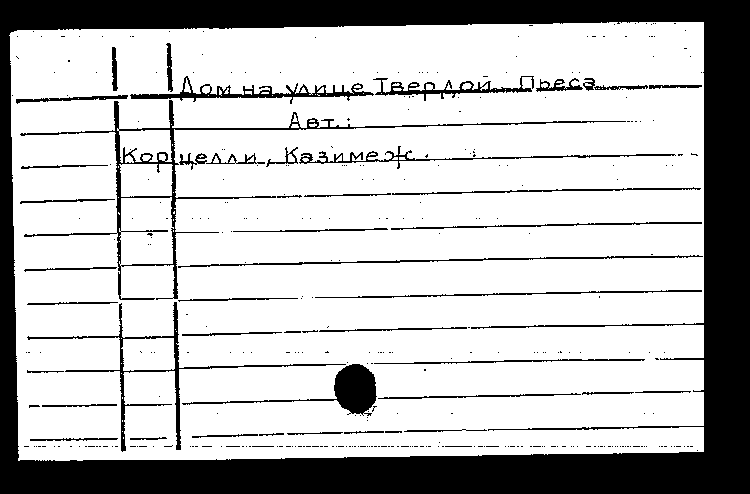 Дом на улице Твердой. Пьеса
Авт.:
Корцелли, Казимеж.